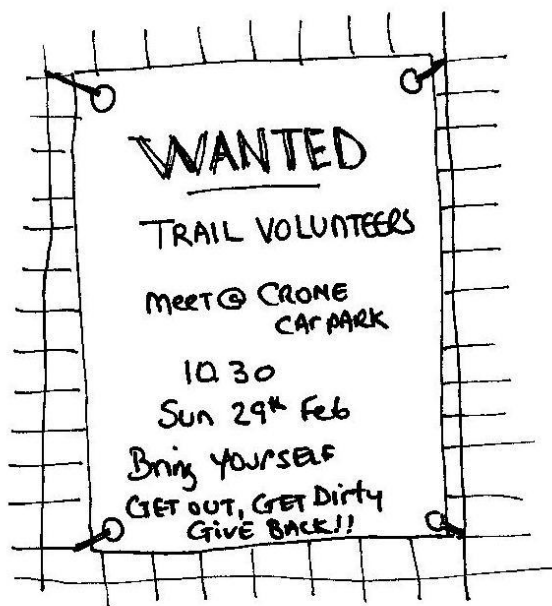 WANTED
TRAIL VOLUNTEERS
MEET @ CRONE
CAr PARK
10.30
Sun 29th Feb
Bring YOUrSELF
GET OUT, GET Dirty
GiVE BACK!!